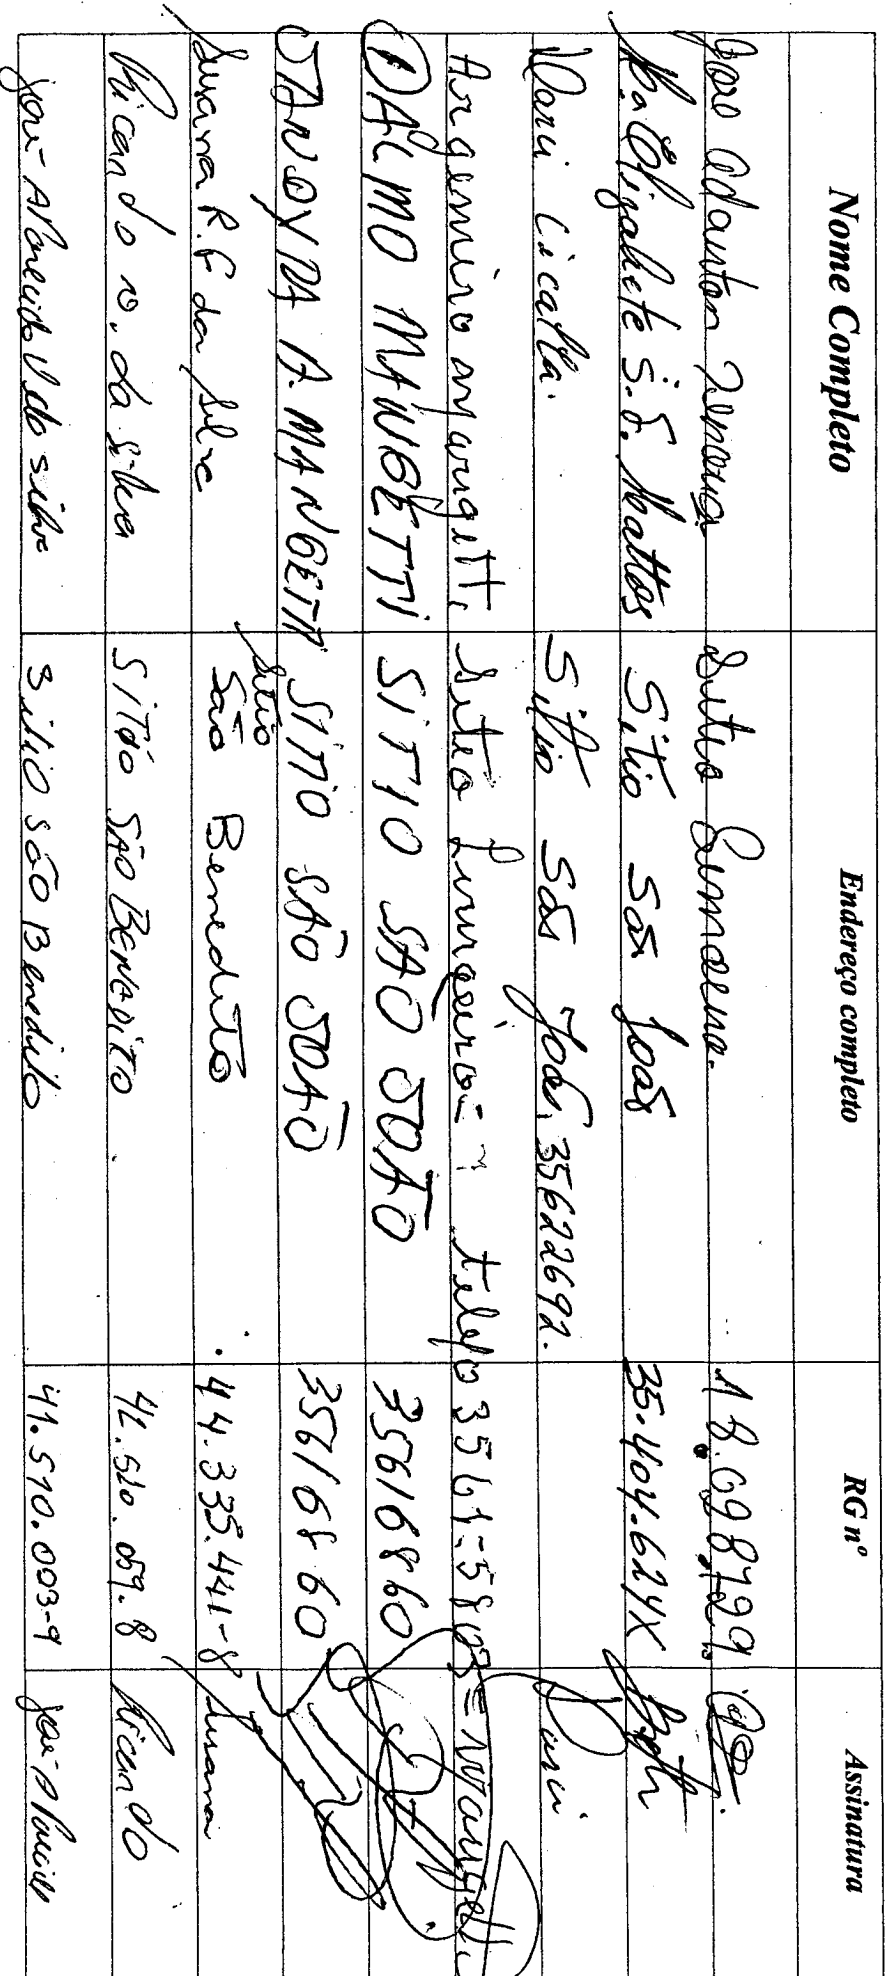 Nome Completo Endereço completo RG nº Assinatura
José Sitio 18.698.729
M. Elizabete S. S. Mattos Sitio São João 35.404.624X Beth
Darci Sitio São João, 35622692. Darci
Argemiro Mangetti Sitio Limoeiro telefo 3561-5803 = Mangetti
DALMO MANGETTI SITIO SÃO JOÃO 35616860
A. MANGETTI SITIO SÃO JOÃO 35616860
Susana R. F. da Silva Sitio São Benedito 44.335.441-8 Susana
Ricardo da Silva SITIO SÃO BENEDITO Ricardo
José Aparecido da Silva Sitio São Benedito 41.510.093-9 José Aparecido